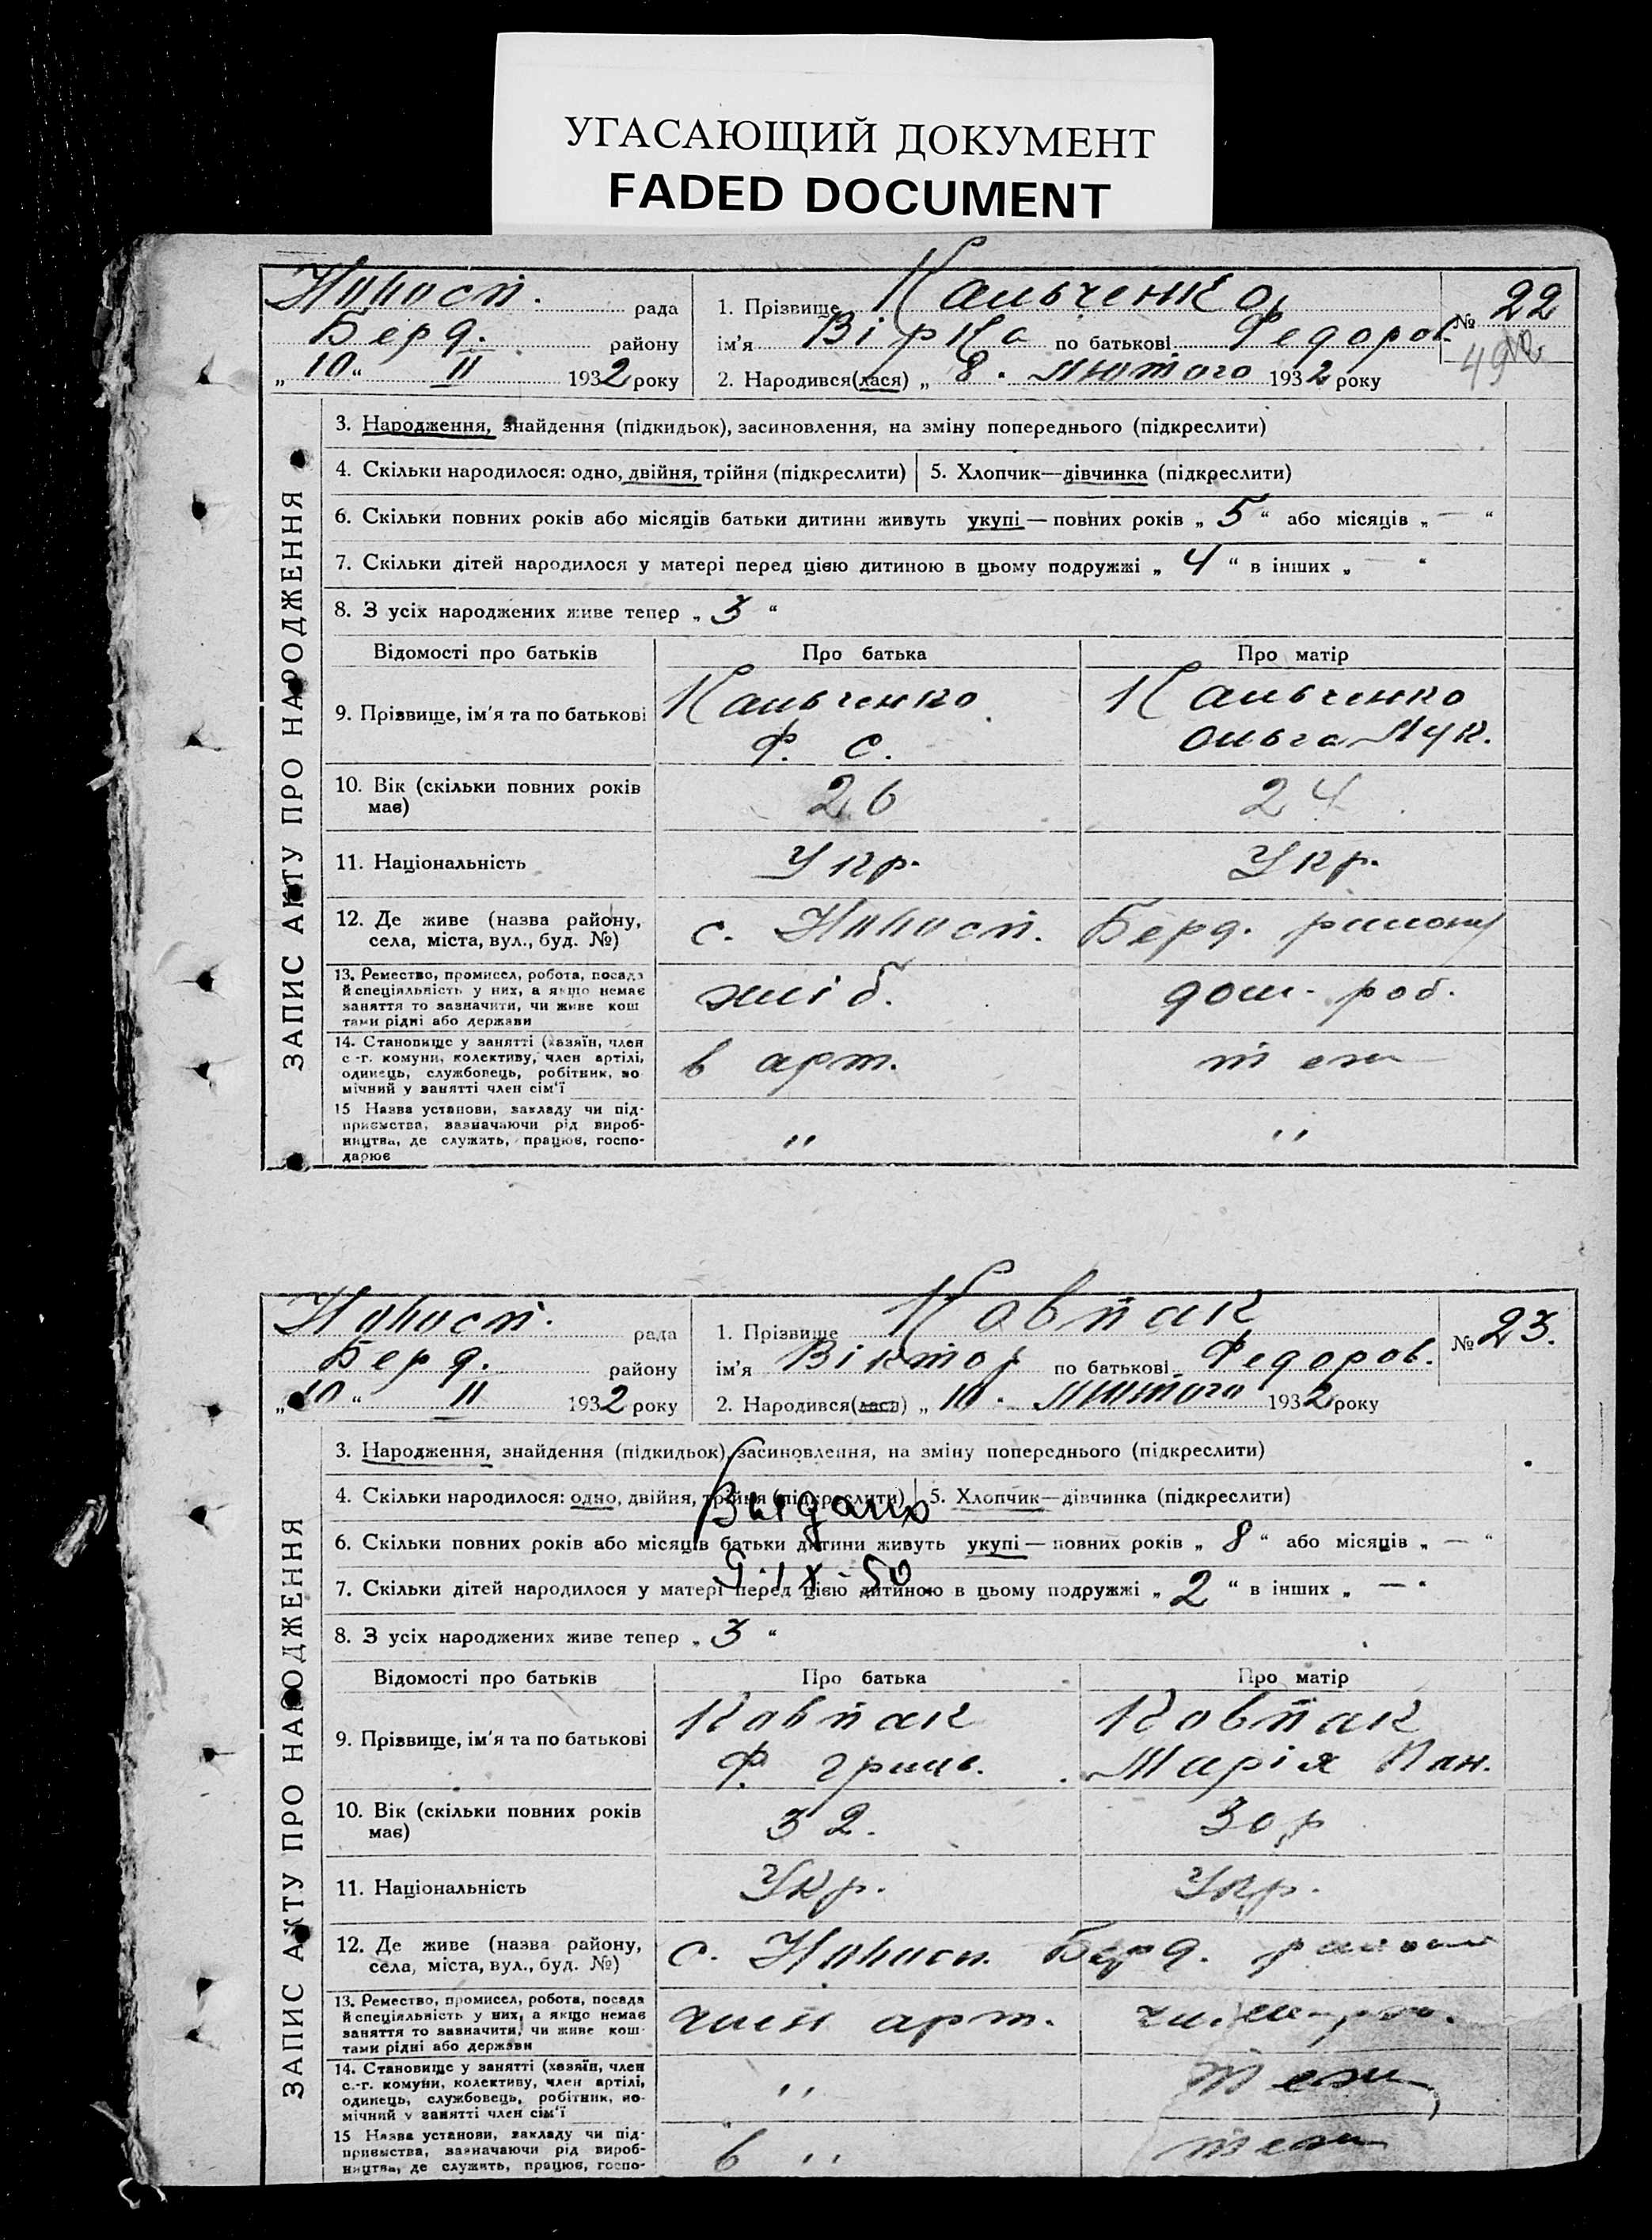 УГАСАЮЩИЙ ДОКУМЕНТ
FADED DOCUMENT
рада
Берд. району
„10“ II 1932 року
1. Прізвище Кальченко
ім'я Вірка по батькові Федоров.
2. Народився(лася) „ 8. Лютого 1932 року
№ 22
49
ЗАПИС АКТУ ПРО НАРОДЖЕННЯ
3. Народження, знайдення (підкидьок), засиновлення, на зміну попереднього (підкреслити)
4. Скільки народилося: одно, двійня, трійня (підкреслити)
5. Хлопчик—дівчинка (підкреслити)
6. Скільки повних років або місяців батьки дитини живуть укупі — повних років „ 5 “ або місяців „ — “
7. Скільки дітей народилося у матері перед цією дитиною в цьому подружжі „ 4 “ в інших „ — “
8. З усіх народжених живе тепер „ 3 “
Відомості про батьків Про батька Про матір
9. Прізвище, ім'я та по батькові
Кальченко
Ф. С.
Кальченко
Ольга Лук.
10. Вік (скільки повних років
має)
26 24
11. Національність Укр. Укр.
12. Де живе (назва району,
села, міста, вул., буд. №)
с. Берд. району
13. Ремество, промисел, робота, посада
й спеціяльність у них, а якщо немає
заняття то зазначити, чи живе кош
тами рідні або держави
хліб. дом. роб.
14. Становище у занятті (хазяїн, член
с.-г. комуни, колективу, член артілі,
одинець, службовець, робітник, по
мічний у занятті член сім'ї
в арт. теж
15 Назва установи, закладу чи під-
приємства, зазначаючи рід вироб-
ництва, де служить, працює, госпо-
дарює
" "
рада
Берд. району
„10“ II 1932 року
1. Прізвище Ковпак
ім'я Віктор по батькові Федоров.
2. Народився(лася) „ 10. Лютого 1932 року
№ 23.
ЗАПИС АКТУ ПРО НАРОДЖЕННЯ
3. Народження, знайдення (підкидьок), засиновлення, на зміну попереднього (підкреслити)
4. Скільки народилося: одно, двійня, трійня (підкреслити)
5. Хлопчик—дівчинка (підкреслити)
Выдано
6. Скільки повних років або місяців батьки дитини живуть укупі — повних років „ 8 “ або місяців „ — “
9-IX-50
7. Скільки дітей народилося у матері перед цією дитиною в цьому подружжі „ 2 “ в інших „ — “
8. З усіх народжених живе тепер „ 3 “
Відомості про батьків Про батька Про матір
9. Прізвище, ім'я та по батькові
Ковпак
Ф. Григ.
Ковпак
Марія Пан.
10. Вік (скільки повних років
має)
32. 30 р
11. Національність Укр. Укр.
12. Де живе (назва району,
села, міста, вул., буд. №)
с. Берд. району
13. Ремество, промисел, робота, посада
й спеціяльність у них, а якщо немає
заняття то зазначити, чи живе кош-
тами рідні або держави
член арт.
14. Становище у занятті (хазяїн, член
с.-г. комуни, колективу, член артілі,
одинець, службовець, робітник, по-
мічний у занятті член сім'ї
" теж
15 Назва установи, закладу чи під-
приємства, зазначаючи рід вироб-
ництва, де служить, працює, госпо-
в " теж